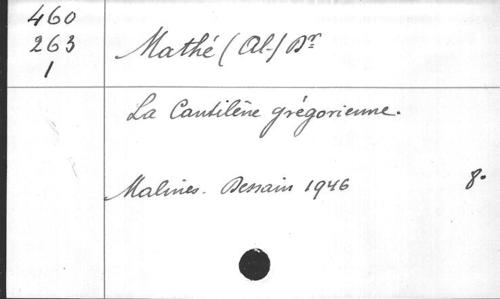 460
263
1
Mathé (Al-) Dr
La Cantilène grégorienne.
Malines. Dessain 1946 8.